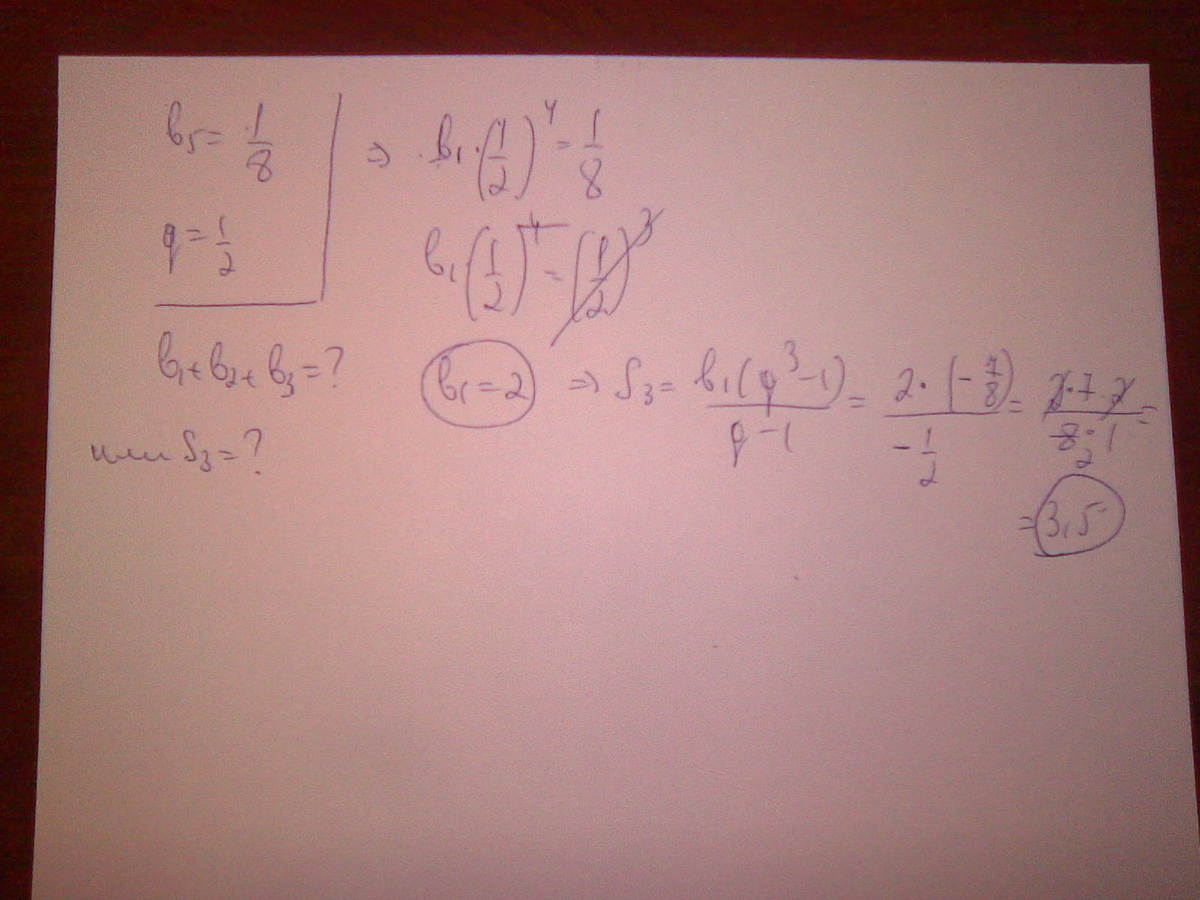 b₅ = 1/8
q = 1/2
b₁ + b₂ + b₃ = ?
или S₃ = ?
⇒ b₁ · (1/2)⁴ = 1/8
b₁ · (1/2)⁴ = (1/2)³
b₁ = 2 ⇒ S₃ = b₁(q³ - 1) / q - 1 = 2 · (-7/8) / -1/2 = 2 · 7 · 2 / 8 · 1 =
2
= 3,5